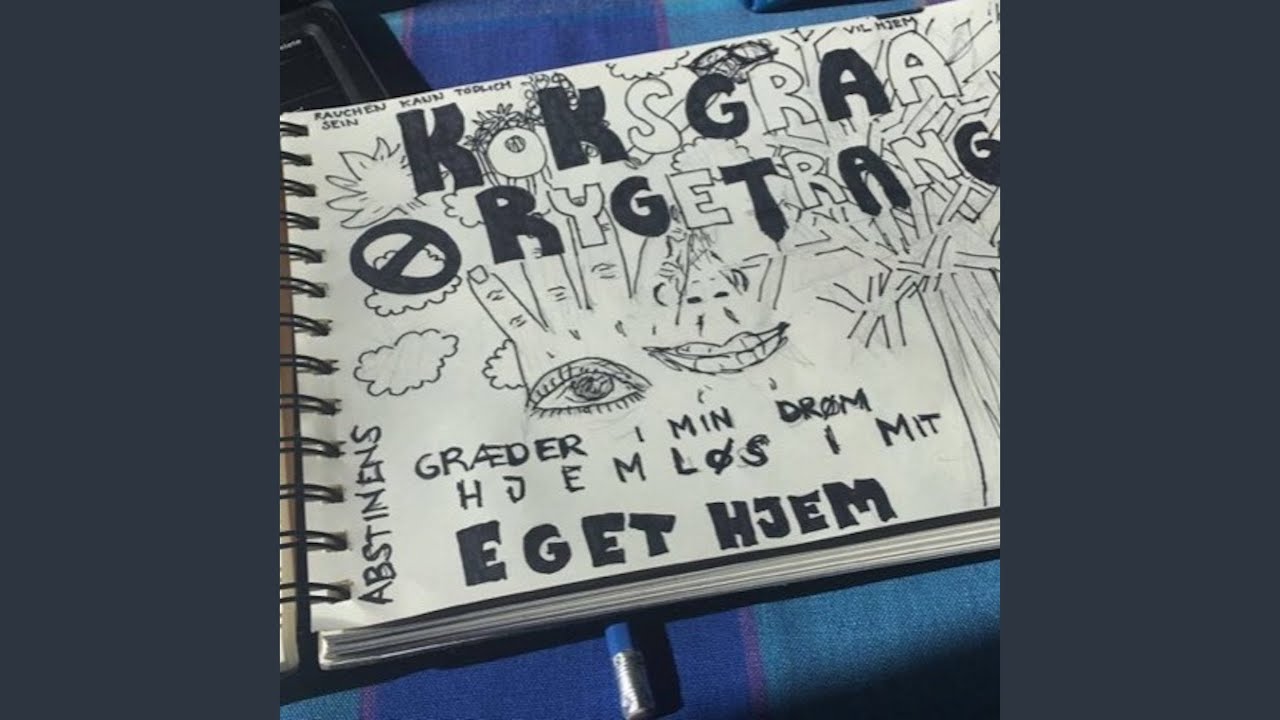 VIL HJEM
RAUCHEN KANN TÖDLICH
SEIN
KOKSGRAA
RYGETRANG
GRÆDER I MIN DRØM
HJEMLØS I MIT
EGET HJEM
ABSTINENS